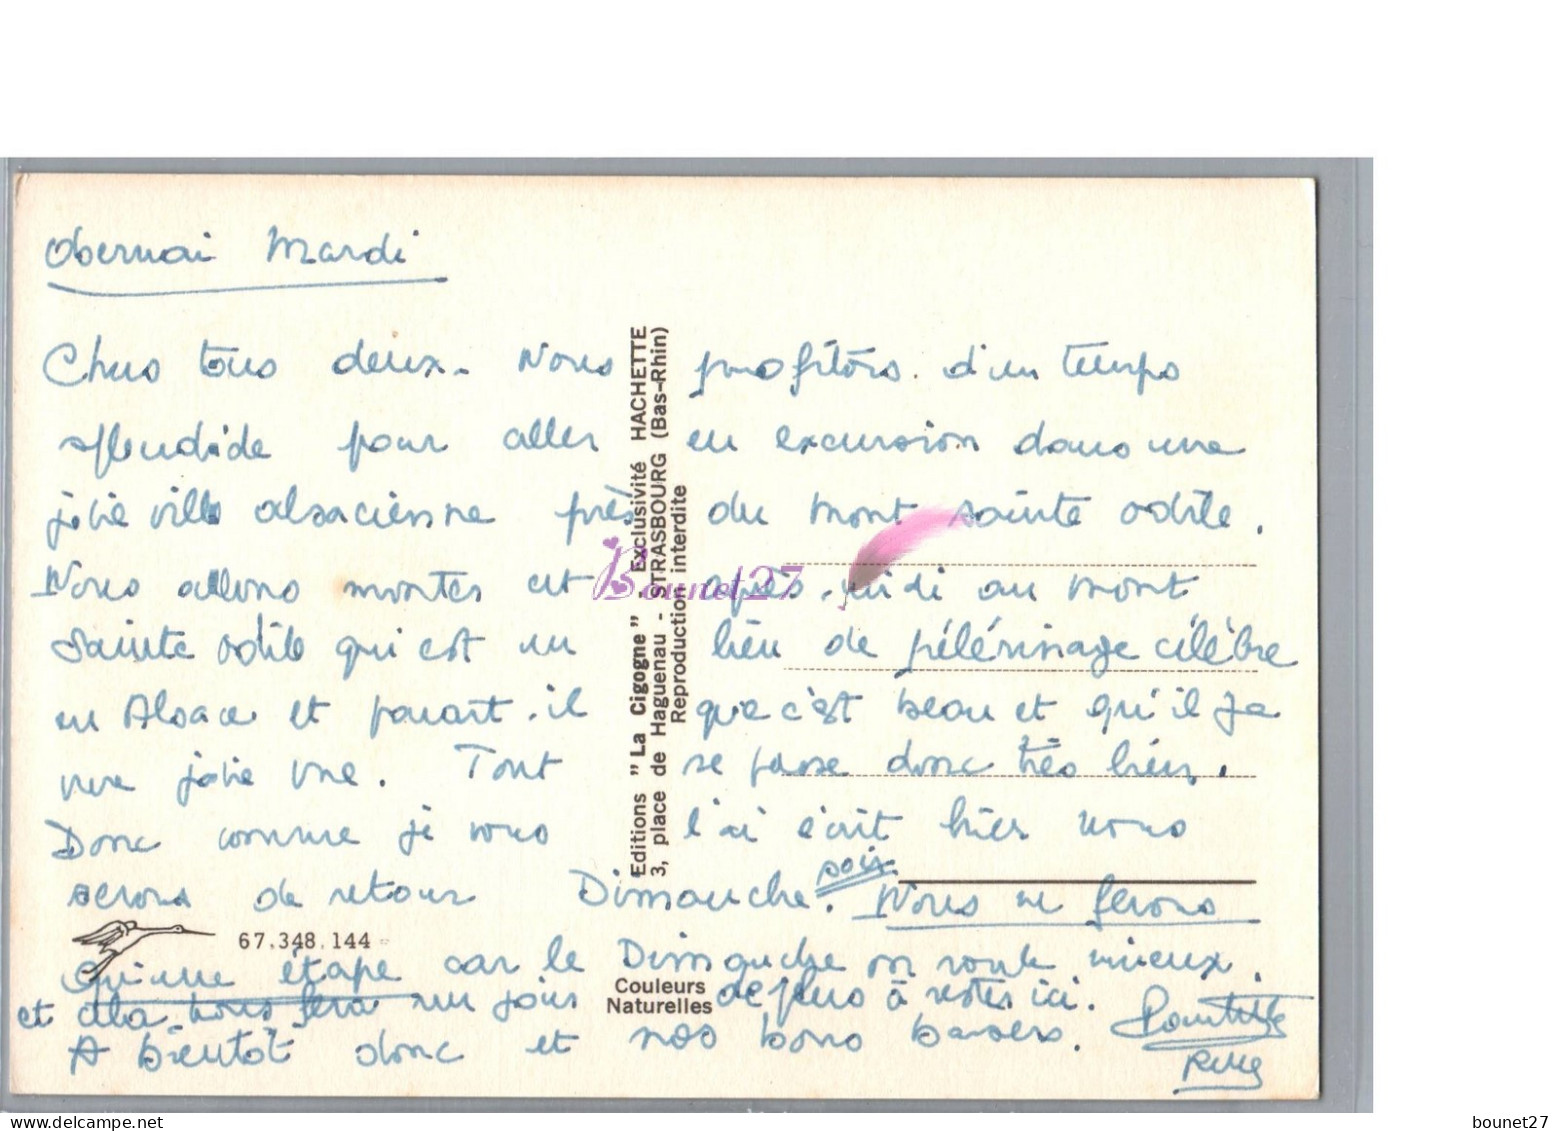 Obernai Mardi
Chers tous deux. Nous profitons d'un temps
splendide pour aller en excursion dans une
jolie ville alsacienne près du mont sainte odile.
Nous allons monter cet après-midi au mont
sainte odile qui est un lieu de pélérinage célèbre
en Alsace et parait-il que c'est beau et qu'il y a
une jolie vue. Tout se passe donc très bien.
Donc comme je vous l'ai écrit hier nous
serons de retour Dimanche soir. Nous ne ferons
qu'une étape car le Dimanche on roule mieux.
et cela nous fera un jour de plus à rester ici.
A bientôt donc et nos bons baisers.
Editions "La Cigogne" - Exclusivité HACHETTE
3, place de Haguenau - STRASBOURG (Bas-Rhin)
Reproduction interdite
67.348.144
Couleurs
Naturelles
Bounet27
bounet27